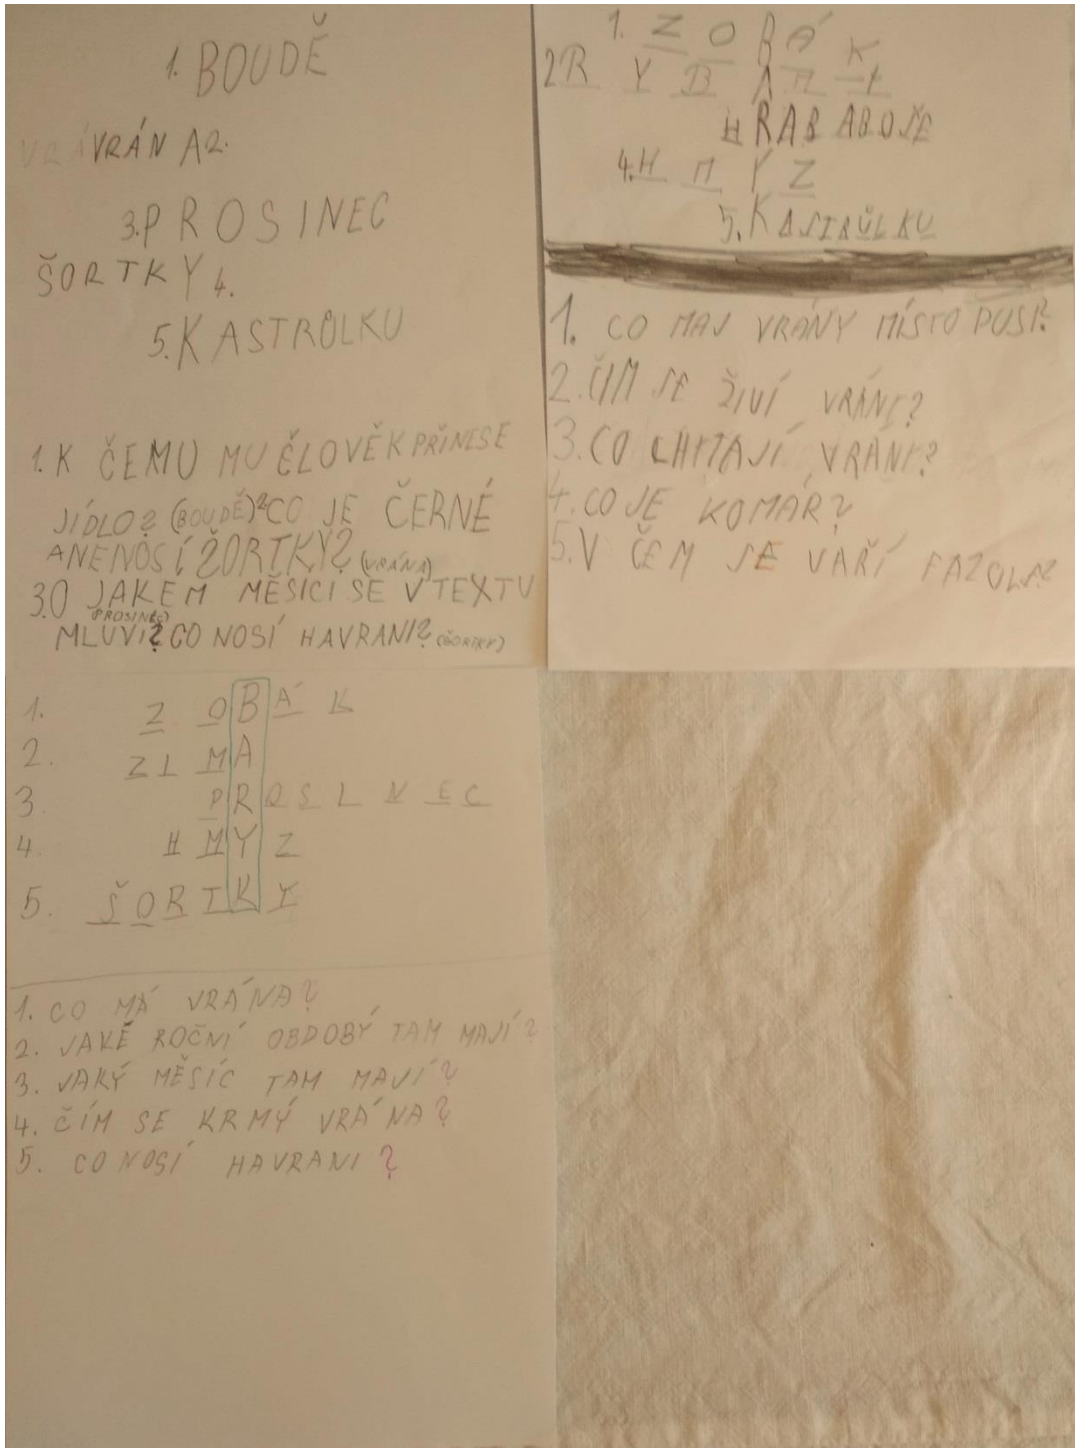 1. BOUDĚ
VRÁVRÁN A2.
3.PROSINEC
ŠORTKY 4.
5.KASTRŮLKU
1. K ČEMU MU ČLOVĚK PŘINESE
JÍDLO? (BOUDĚ) 2CO JE ČERNÉ
ANENOSÍ ŽORTKY? (VRÁNA)
3.O JAKEM MĚSICI SE V TEXTU
(PROSINEC)
MLUVI? CO NOSÍ HAVRANI? (ŠORTKY)
1. Z O B Á K
2R Y B A
H RAB ABOŠE
4.H M Y Z
5.KASTRŮLKU
1. CO MAJ VRÁNY MÍSTO PUSI?
2.ČIM SE ŽIVÍ VRÁNI?
3.CO CHITAJÍ VRÁNI?
4.CO JE KOMÁR?
5.V ČEM SE VAŘÍ FAZOLE?
1. Z O B Á K
2. Z I M A
3. P R O S I N E C
4. H M Y Z
5. Š O R T K Y
1. CO MÁ VRÁNA?
2. JAKÉ ROČNÍ OBDOBÝ TAM MAJÍ?
3. JAKÝ MĚSÍC TAM MAJÍ?
4. ČÍM SE KRMÝ VRÁNA?
5. CO NOSÍ HAVRANI?